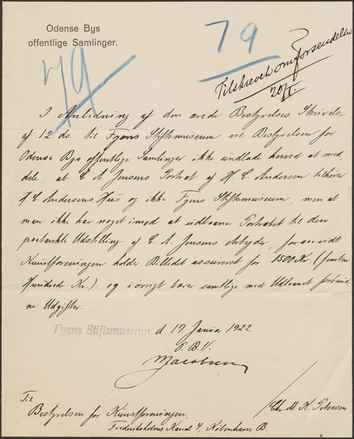 Odense Bys
offentlige Samlinger.
79
79
Tilskrevet om Forsendelse
20/1
I Anledning af den ærede Bestyrelses Skrivelse
af 12 ds. til Fyens Stiftsmuseum vil Bestyrelsen for
Odense Bys offentlige Samlinger ikke undlade herved at med-
dele at C A Jensens Portræt af H. C. Andersen tilhører
H. C. Andersens Hus og ikke Fyens Stiftsmuseum men at
man ikke har noget imod at udlaane Portrættet til den
paatænkte Udstilling af C A Jensens Arbejder, for saa vidt
Kunstforeningen holder Billedet assureret for 1500 Kr (femten
Hundrede Kr.) og i øvrigt bærer samtlige med Udlaanet forbund-
ne Udgifter.
Fyens Stiftsmuseum d. 17 Januar 1922
P. B. V.
Jacobsen
Til
Bestyrelsen for Kunstforeningen,
Frederiksholms Kanal 4, København B.
Chr. M. K. Petersen